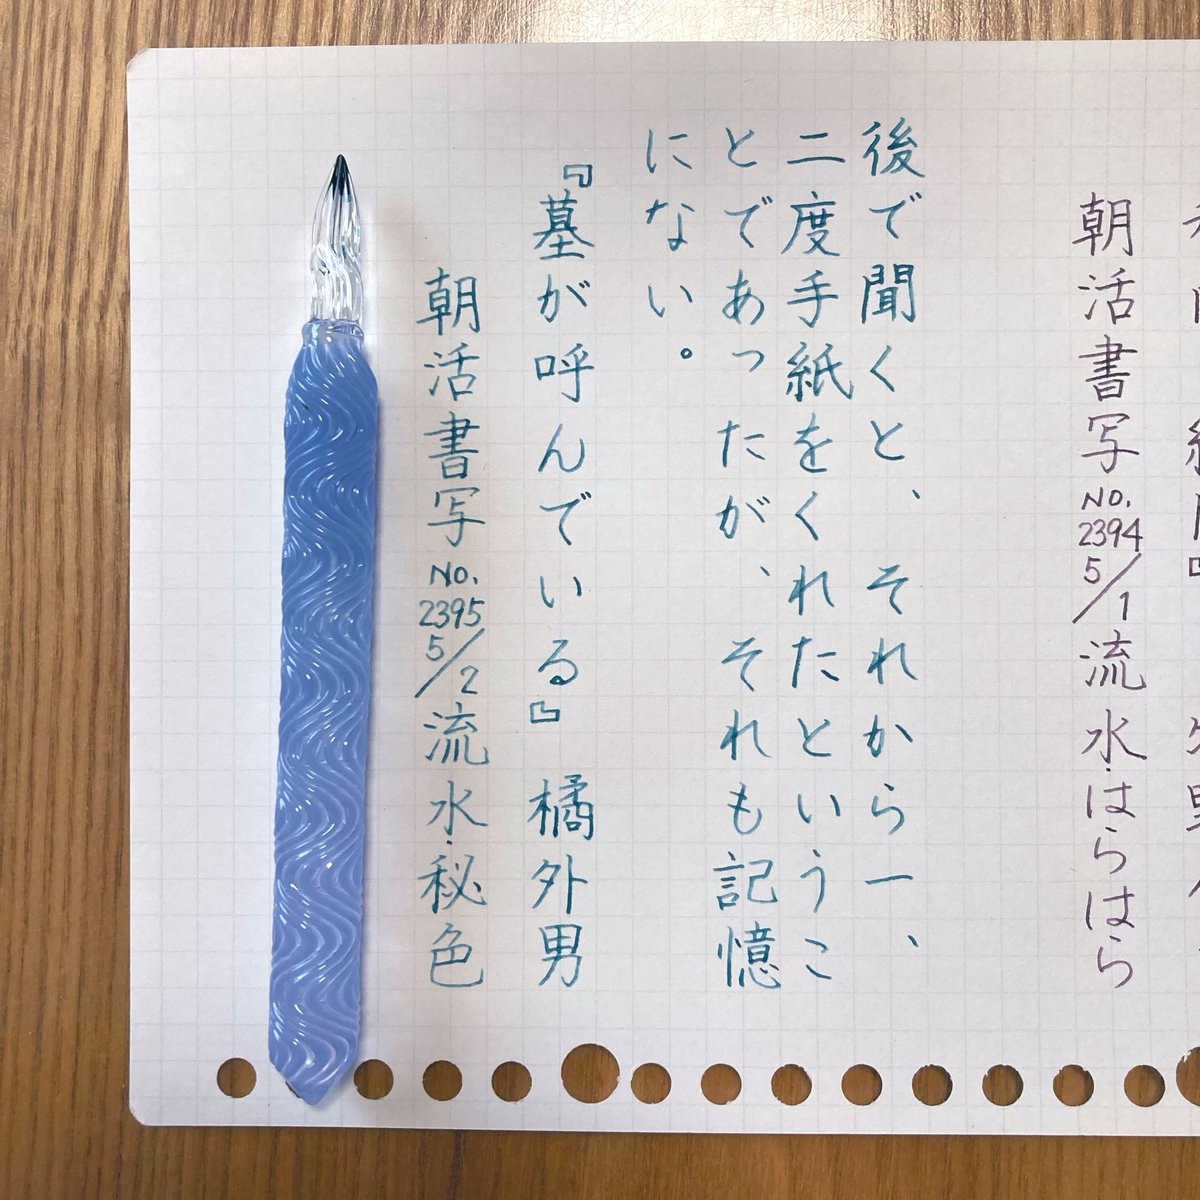 朝活書写No.2394 5/1流水・はらはら
後で聞くと、それから一、
二度手紙をくれたというこ
とであったが、それも記憶
にない。
『墓が呼んでいる』 橘外男
朝活書写No.2395 5/2流水・秘色